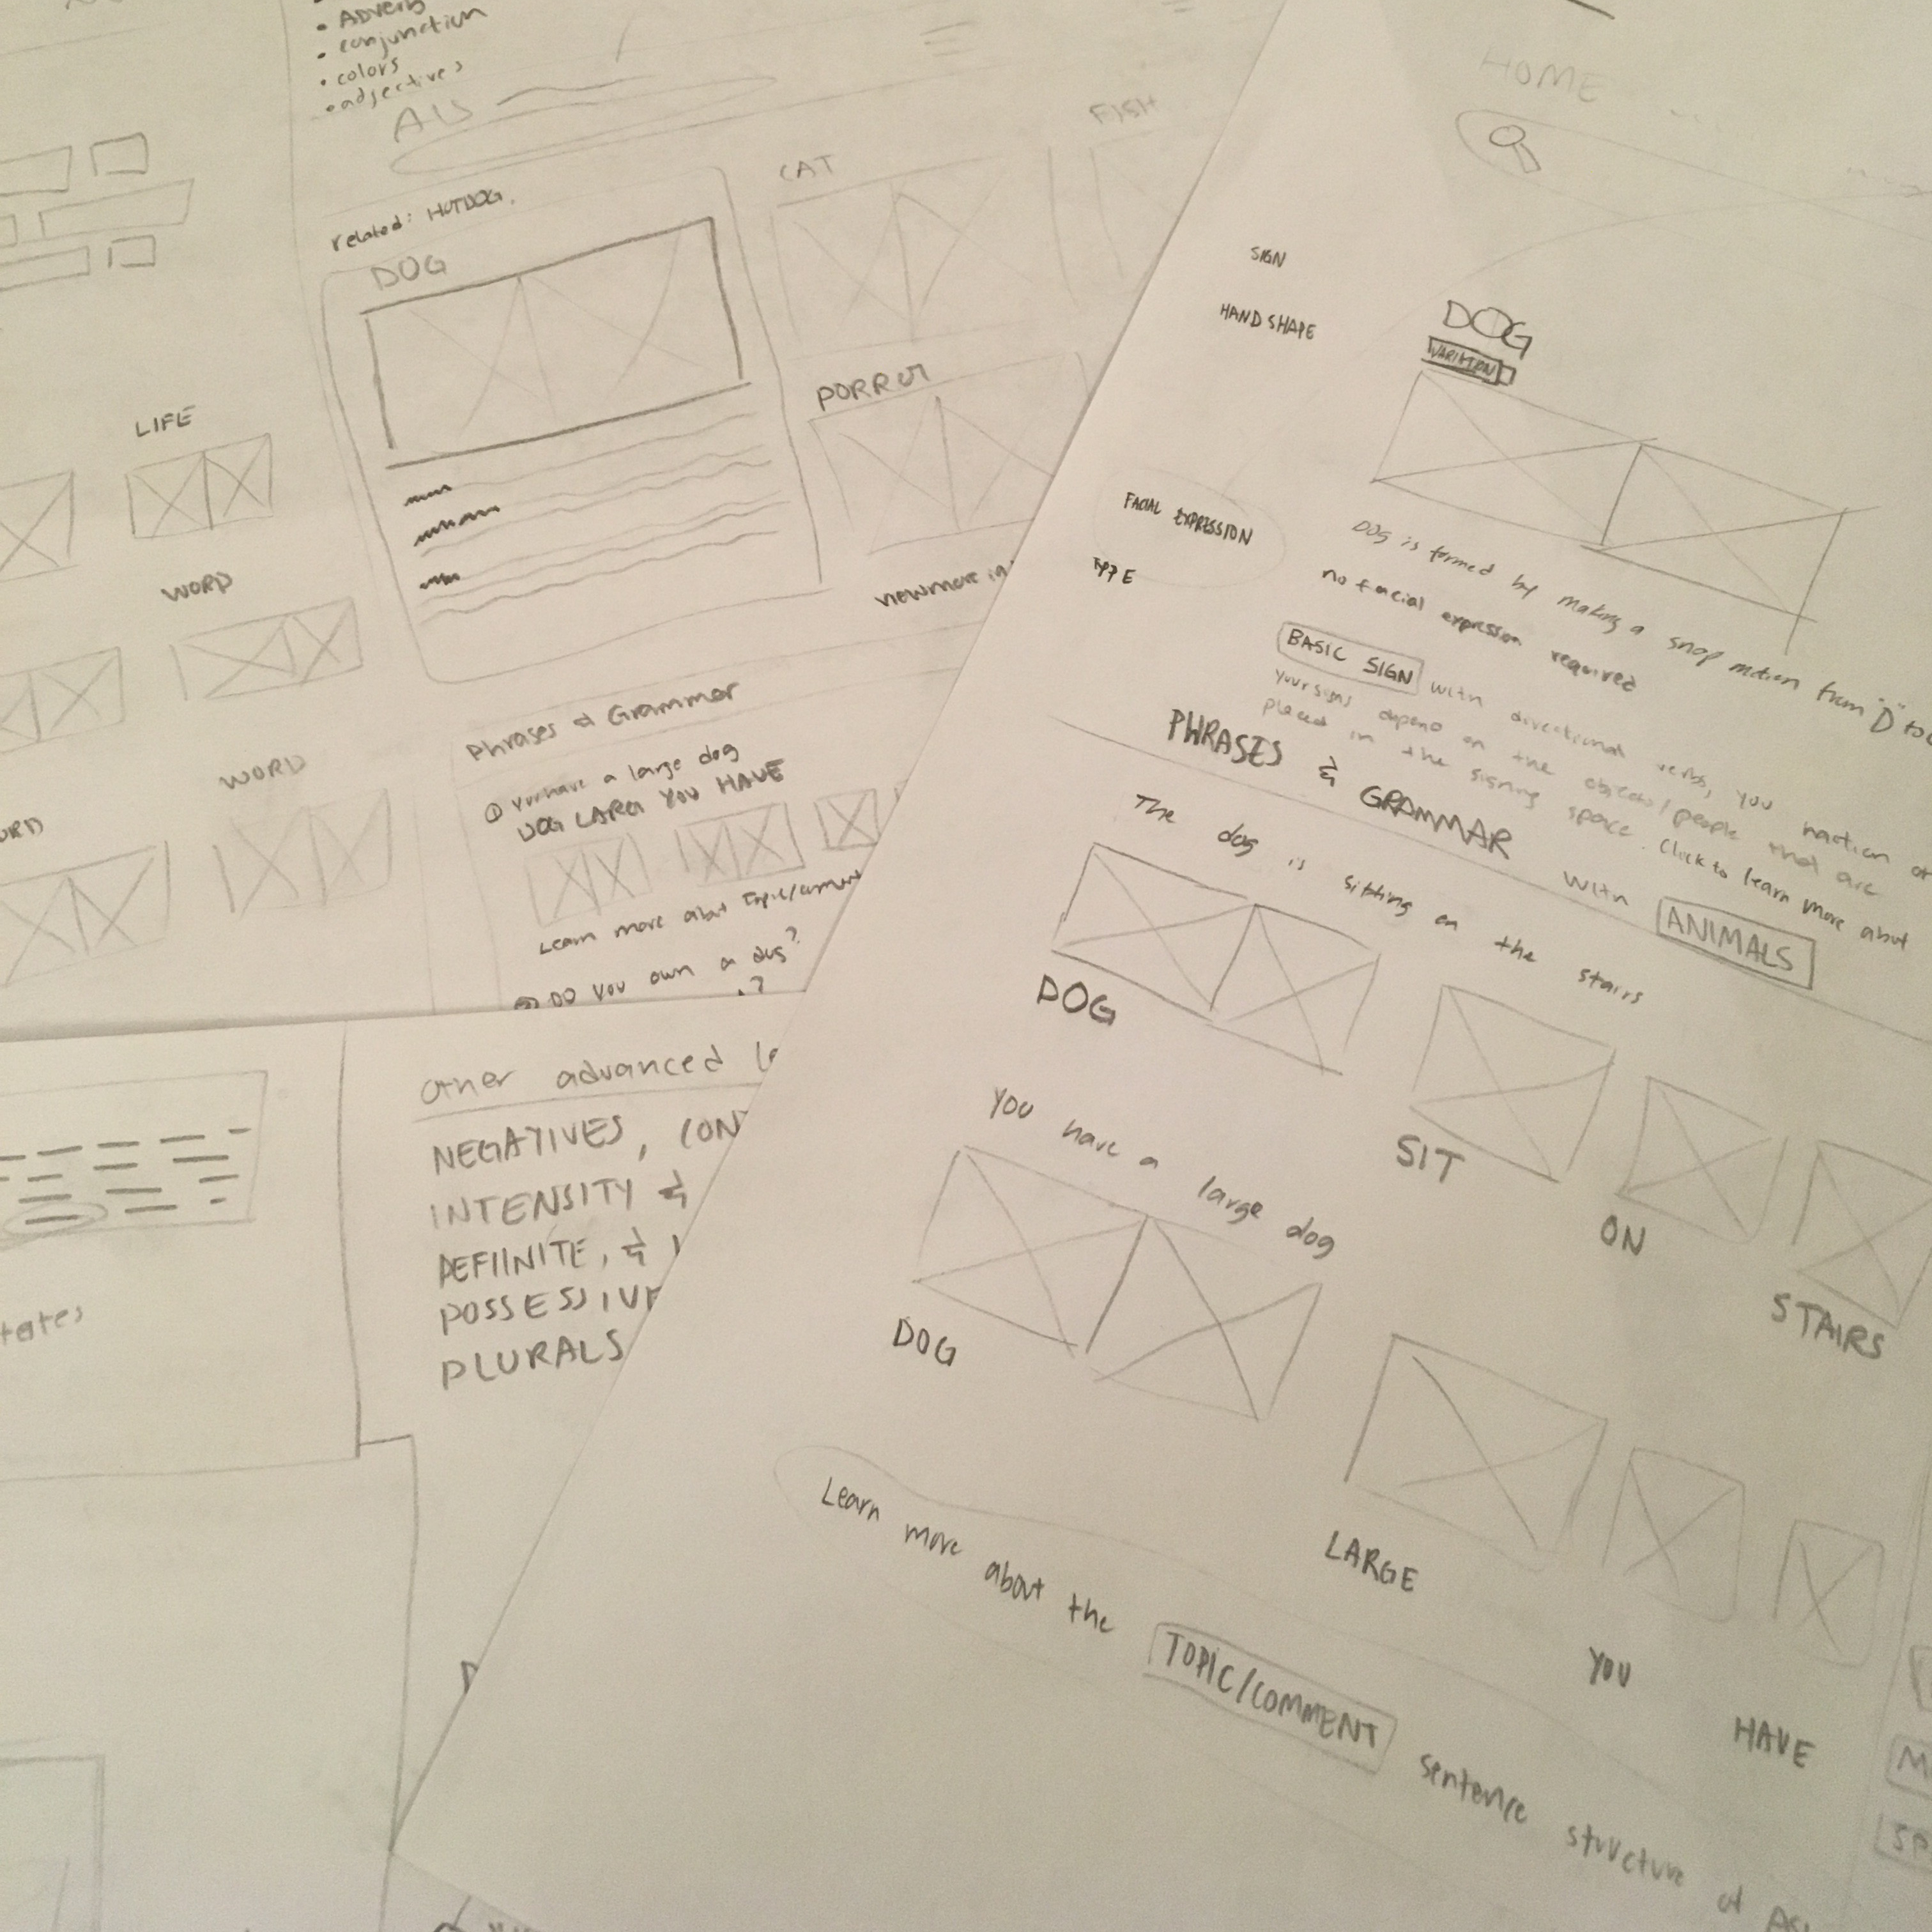 conjunction
colors
adjectives
related: HOTDOG.
DOG
CAT
FISH
PORROT
LIFE
WORD
WORD
Phrases & Grammar
① You have a large dog
DOG LARG YOU HAVE
Learn more about Topic/comment
DO YOU own a dog?
Other advanced
NEGATIVES, CON
INTENSITY &
DEFIINITE, &
POSSESSIVE
PLURALS
tates
HOME
SIGN
HAND SHAPE
DOG
VARIATION
FACIAL EXPRESSION
TYPE
DOG is formed by making a snap motion from "D" to
no facial expression required
BASIC SIGN with directional verbs, you
your signs depend on the objects/people that are
placed in the signing space. Click to learn more about
PHRASES & GRAMMAR with ANIMALS
The dog is sitting on the stairs
DOG
SIT
ON
STAIRS
You have a large dog
DOG
LARGE
YOU
HAVE
Learn more about the TOPIC/COMMENT sentence structure of